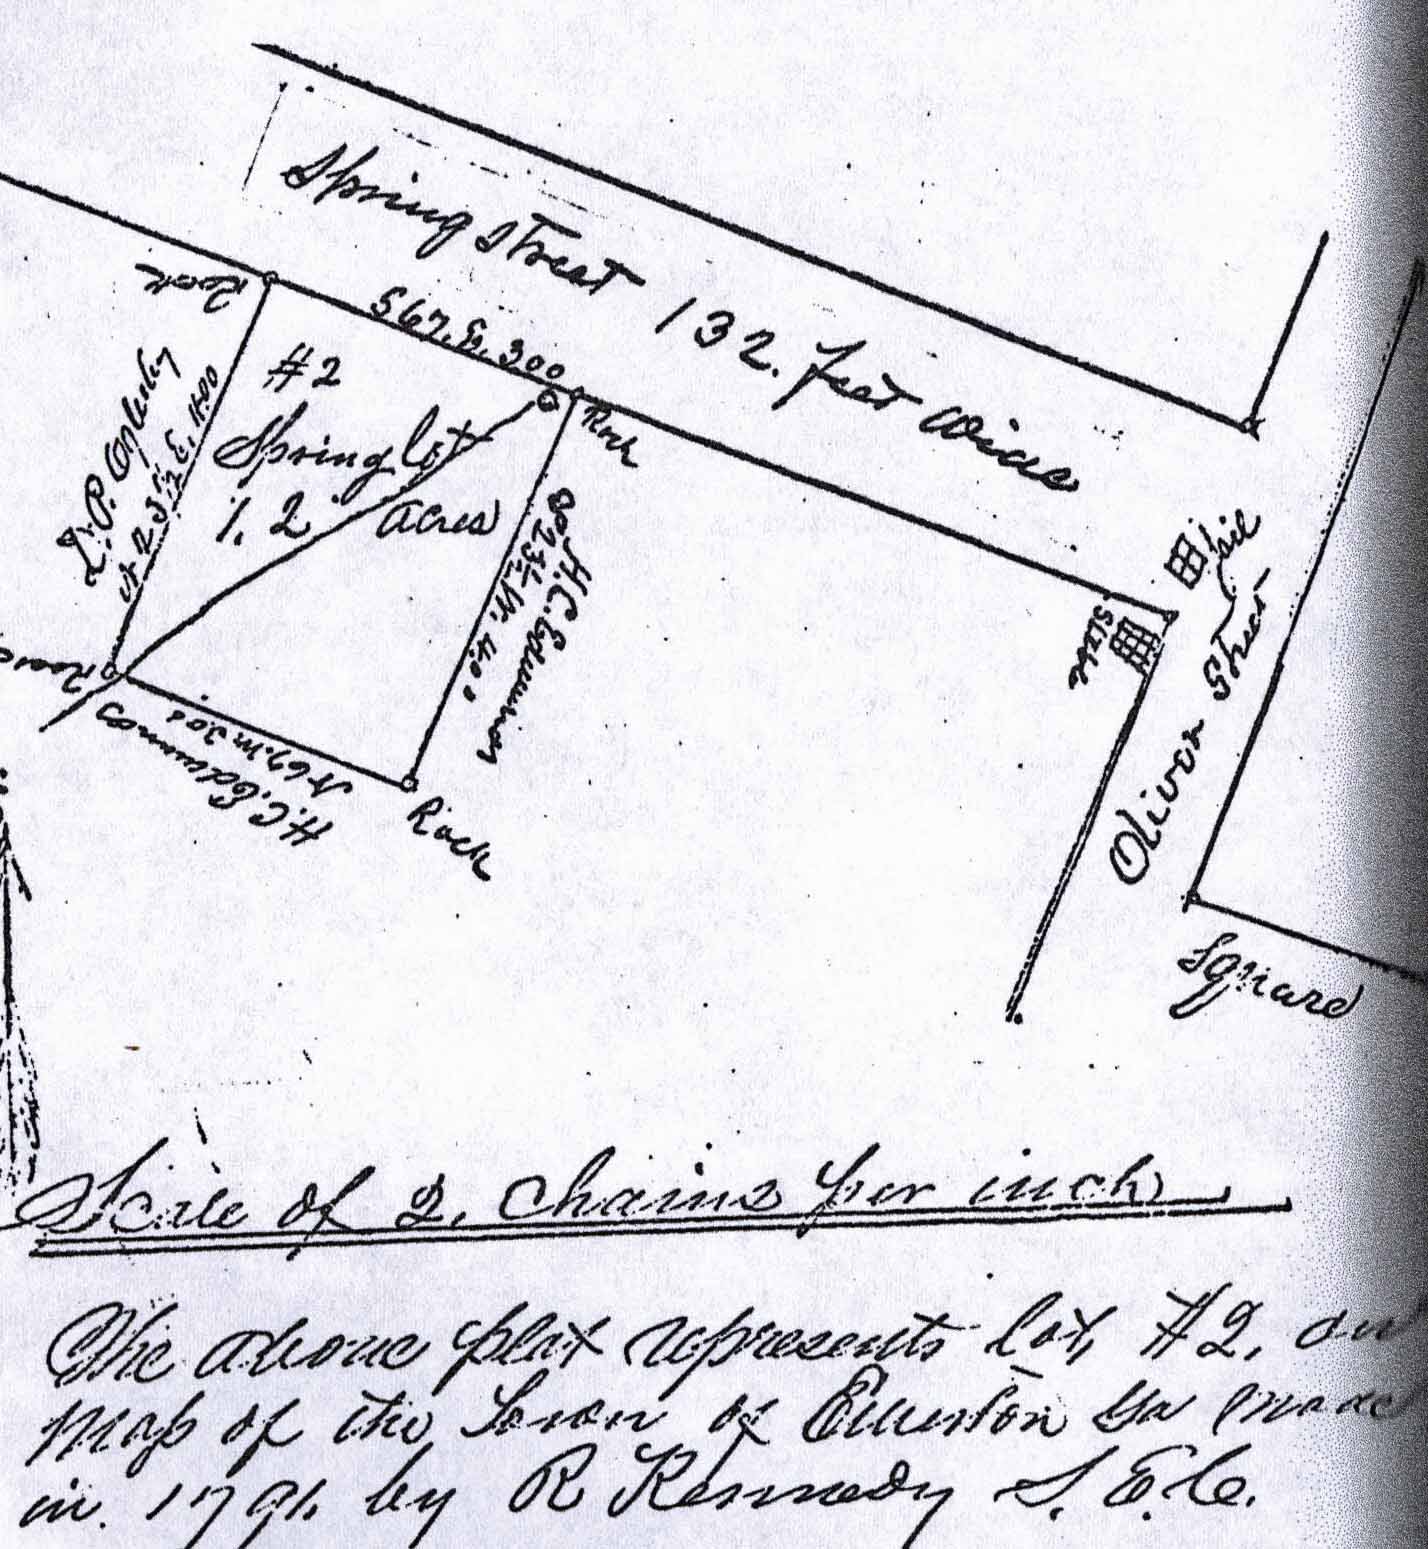 Spring Street 132. feet wide
Rock
S 67. E. 300
#2
Spring lot
1.2 acres
Rock
N 23½ E. 4.00
So 23½ W. 4.00
H.C. Edmunds
Jail
Stable
Oliver Street
N 67. W 3.00
H.C. Edmunds
Rock
Square
Scale of 2, Chains per inch
The above plat represents lot, #2, on
map of the Town of Elberton Ga made
in 1791. by R Kennedy S. E. C.